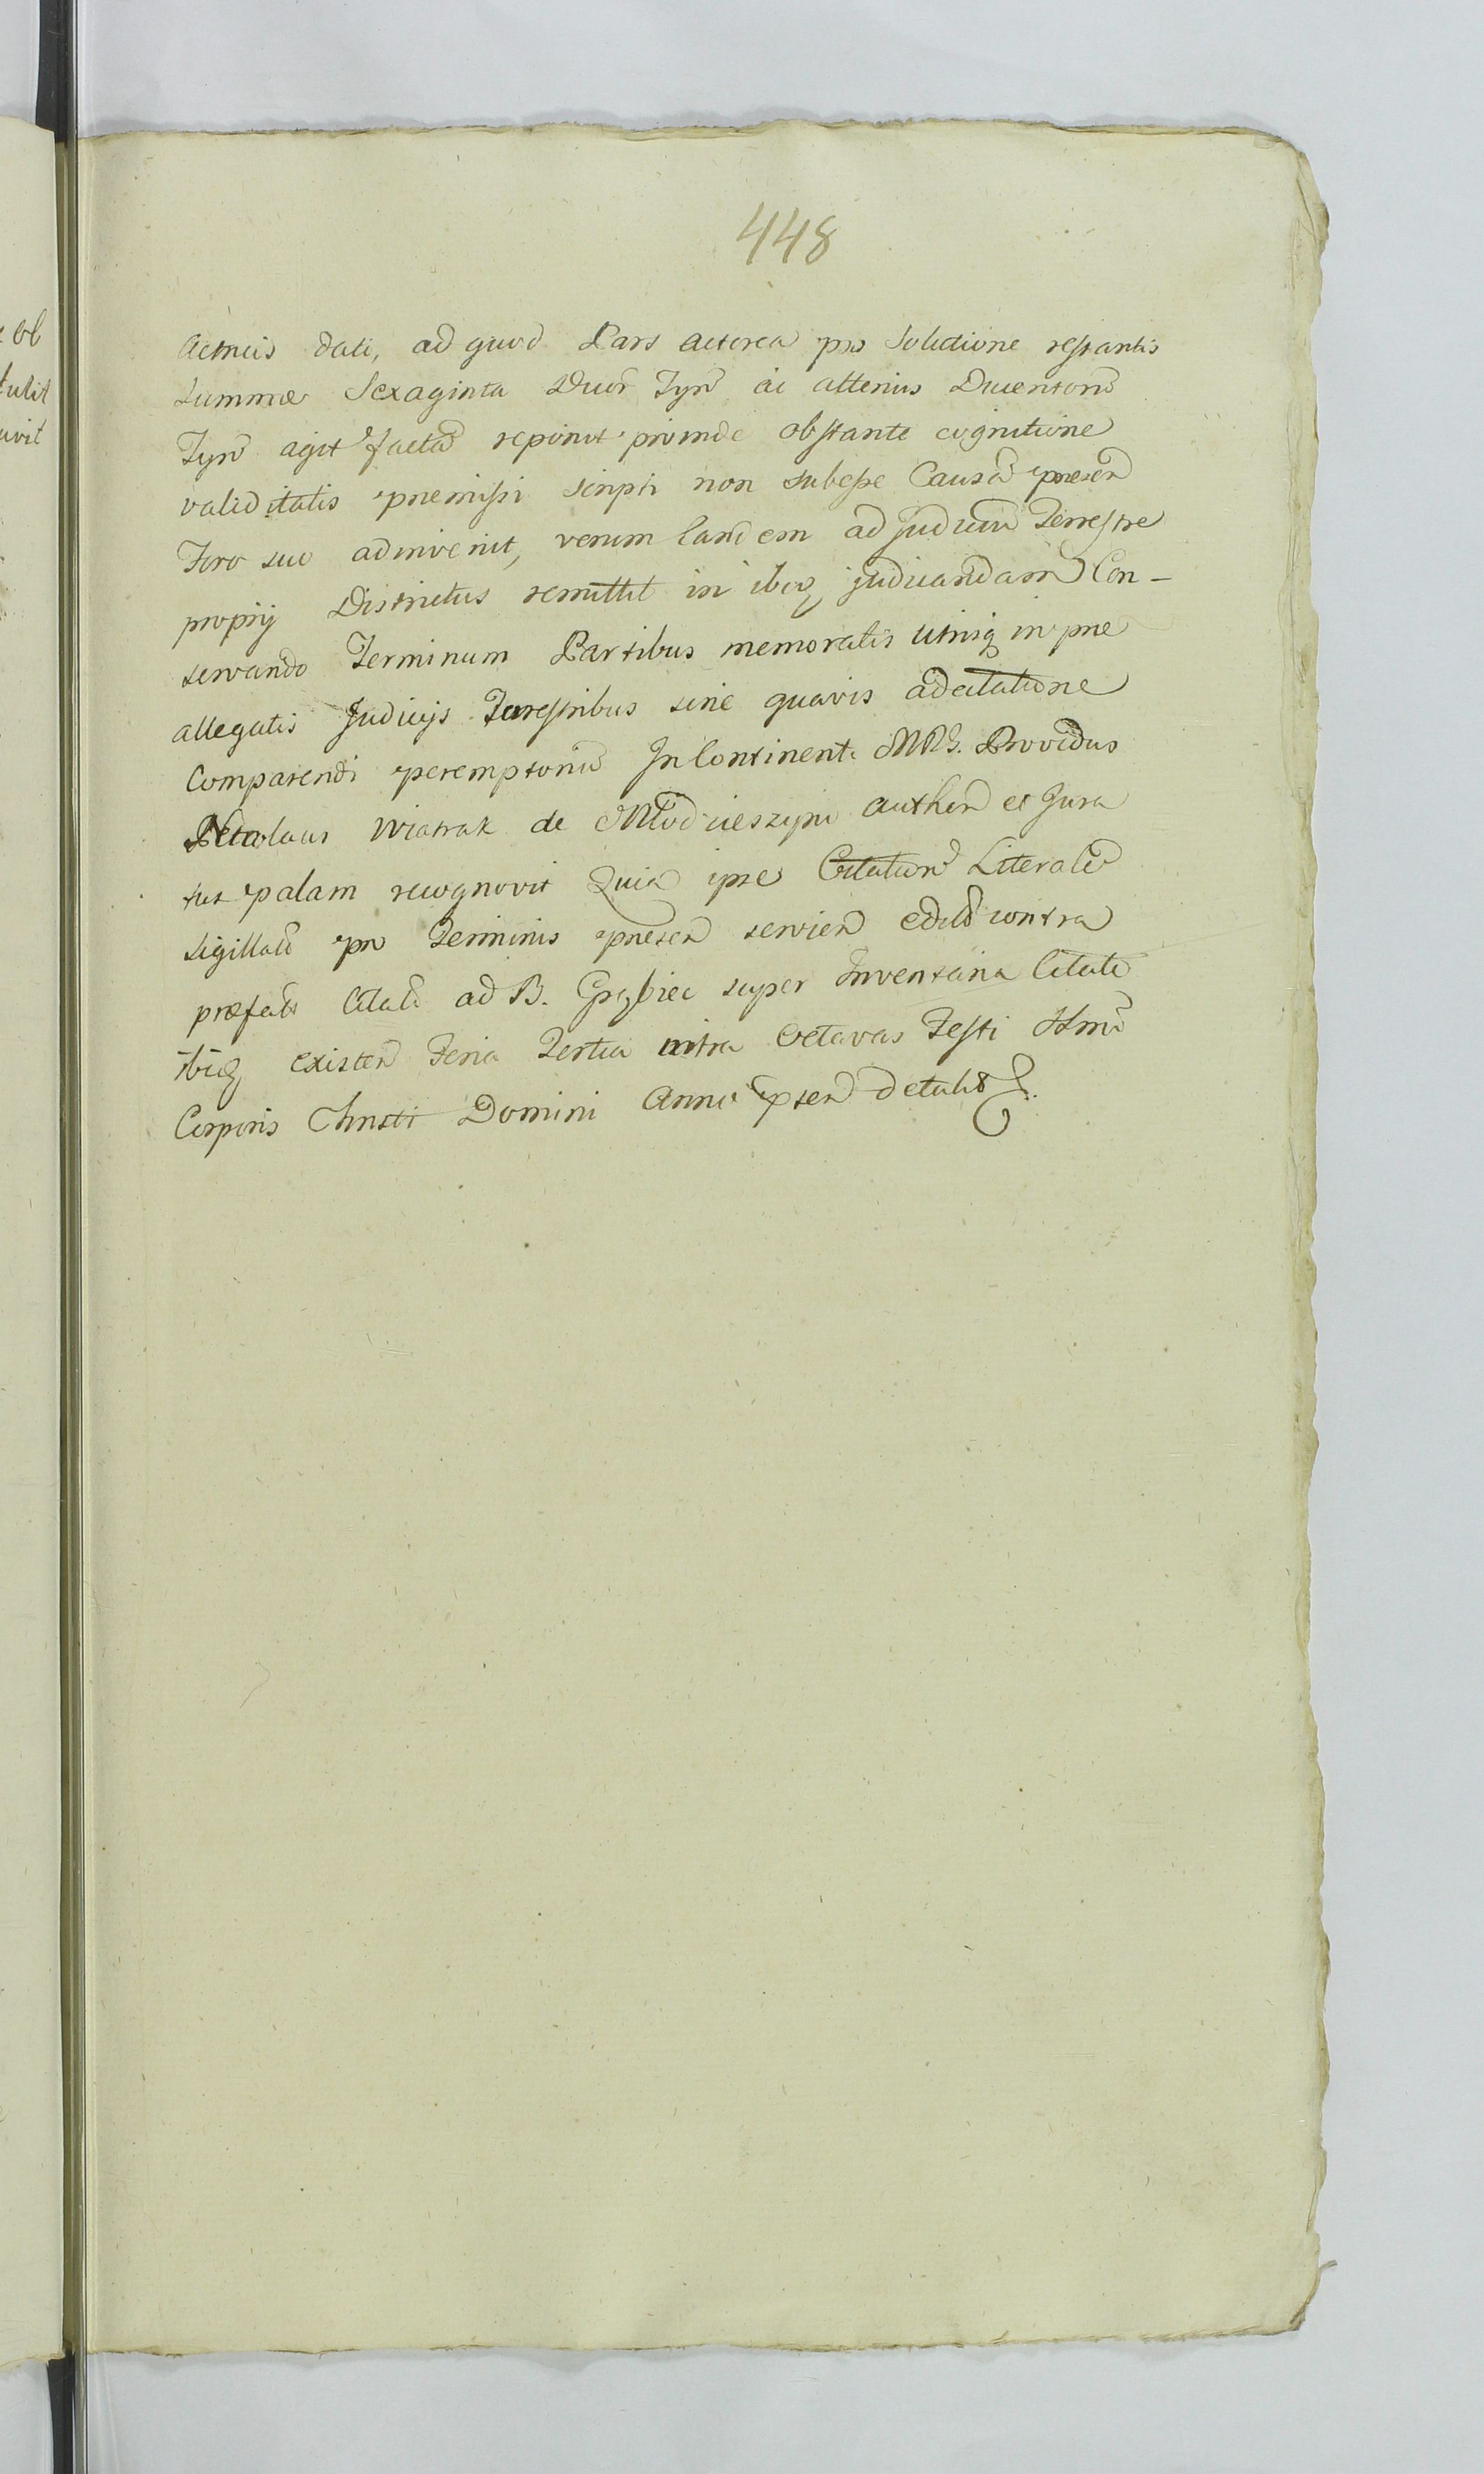 448
Actricis dati, ad quod Pars Actorea pro Solutione restantis
Summæ Sexaginta Duor Tyn ac alterius Ducentorū
Tyn agit facta reponit proinde obstante cognitione
validitatis præmissi Scripti non subesse Causā præsen
Foro suo adinvenit, verum eandem ad Judiciū Terrestre
proprij Districtus remittit in ibiq judicandam Con-
servando Terminum Partibus memoratis utrisq in præ
allegatis Judicijs Terrestribus sine quavis adcitatione
Comparendi peremptoriū In Continenti MRG. Providus
Nicolaus Wiatrak de Młodzieszyn authen et Jura
tus palam recognovit Quia ipse Citation Literale
Sigillatā pro Terminis præsen servien edit contra
præfat Citat ad B. Grzybiec super Inventaria Citati
ibiq existen Feria Tertia intra Octavas Festi Ssmi
Corporis Christi Domini Anno præsen detulit
ob
tulit
uvit